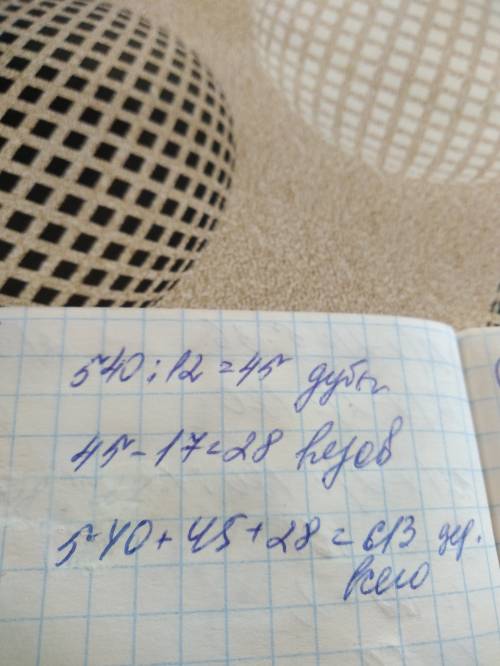 540:12=45 дубы
45-17=28 вязов
540+45+28=613 дер.
всего